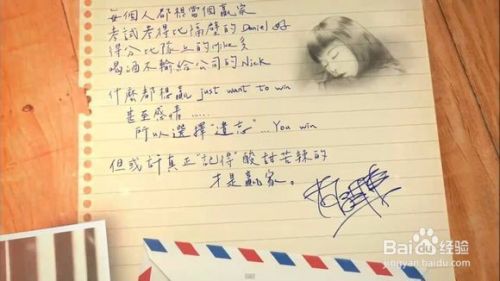 每個人都想當個贏家
考試考得比隔壁的 Daniel 好
得分比隊上的 Mike 多
喝酒不輸給公司的 Nick
什麼都想贏 just want to win
甚至感情.....
所以選擇"遺忘"... You win
但或許真正"記得"酸甜苦辣的
才是贏家。
Bai du 经验
jingyan.baidu.com